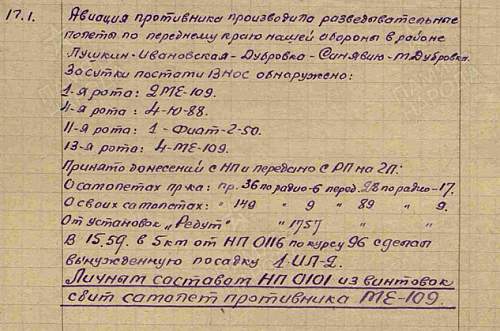 17.1. Авиация противника производила разведывательные
полеты по переднему краю нашей обороны в районе
Пушкин-Ивановская-Дубровка-Синявино-М.Дубровка.
За сутки постами ВНОС обнаружено:
1-я рота: 2 МЕ-109.
4-я рота: 4-Ю-88.
11-я рота: 1-Фиат-2-50.
13-я рота: 4-МЕ-109.
Принято донесений с НП и передано с РП на 2П:
О самолетах пр-ка: пр. 36 по радио-6 перед. 28 по радио-17.
О своих самолетах: " 149 " 9 " 89 " 9.
От установок „Редут" " 1757 " "
В 15.59. в 5 км от НП 0116 по курсу 96 сделал
вынужденную посадку 1 ИЛ-2.
Личным составом НП 0101 из винтовок
сбит самолет противника МЕ-109.